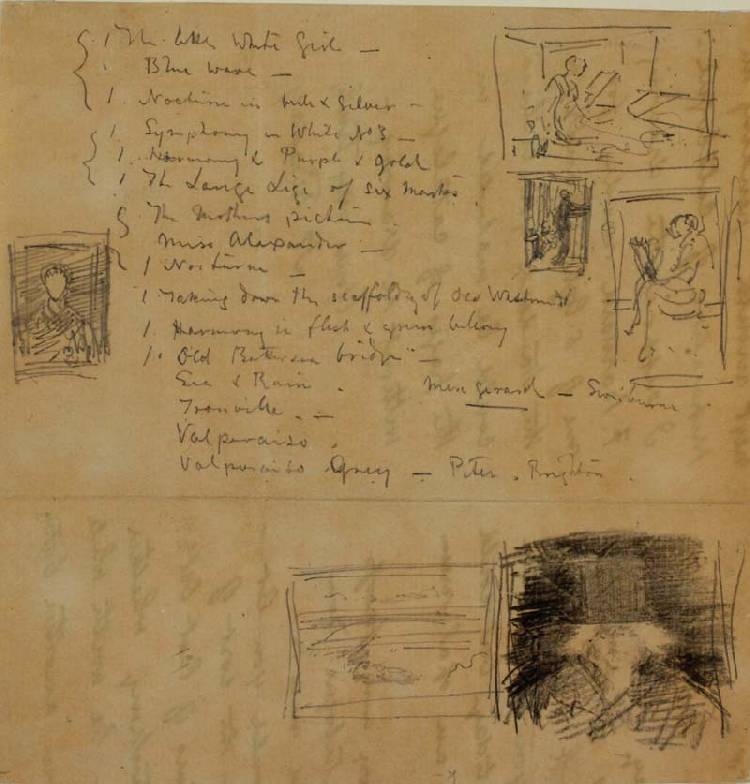 1 The little White Girl —
1 Blue wave —
1. Nocturne in blue & Silver —
1. Symphony in White No 3 —
1. Harmony in Purple & Gold
1 The Lange Lizi of Six Marks
The Mothers picture
Miss Alexander —
1 Nocturne —
1 Taking down the scaffolding of Old Westminster
1. Harmony in flesh & green balcony
1. Old Battersea bridge —
Sea & Rain .
Miss Gerard — Swinburne
Trouville . —
Valparaiso .
Valparaiso Grey — Peter . Brighton .